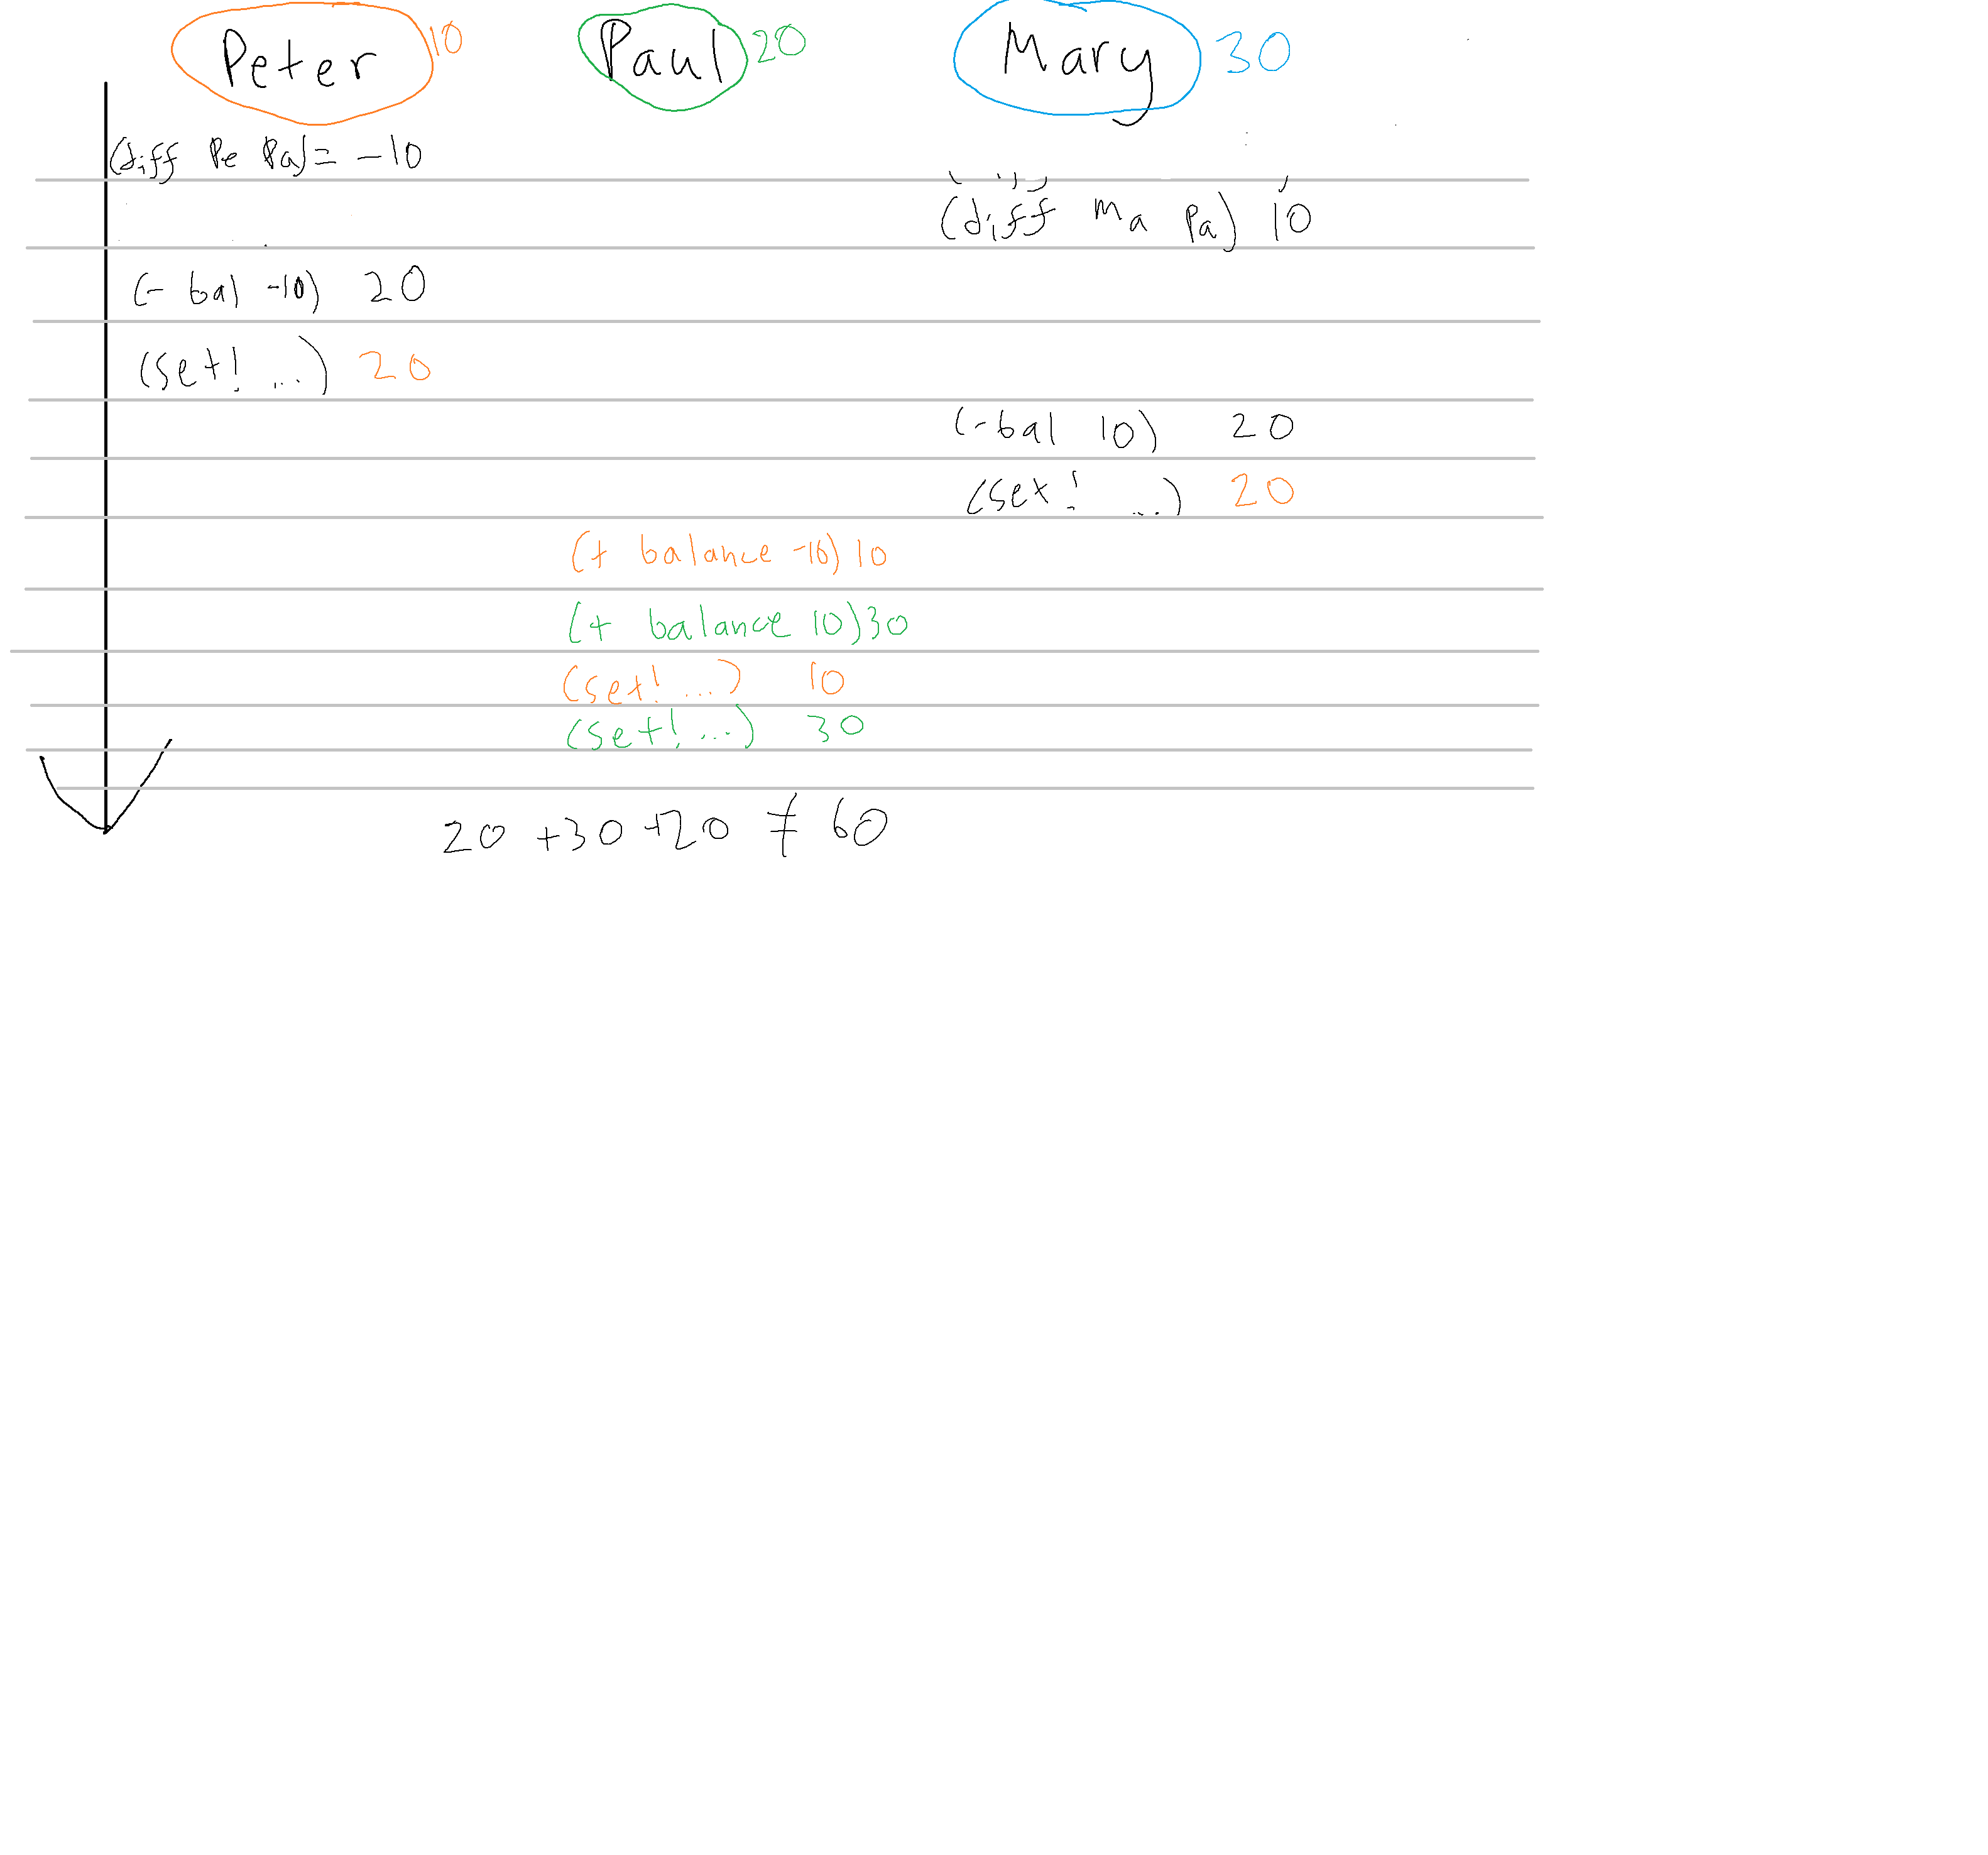 Peter 10 Paul 20 Mary 30
(diff Pe Pa) = -10
(diff Ma Pa) 10
(- bal -10) 20
(set! ...) 20
(- bal 10) 20
(set! ...) 20
(+ balance -10) 10
(+ balance 10) 30
(set! ...) 10
(set! ...) 30
20 + 30 + 20 ≠ 60